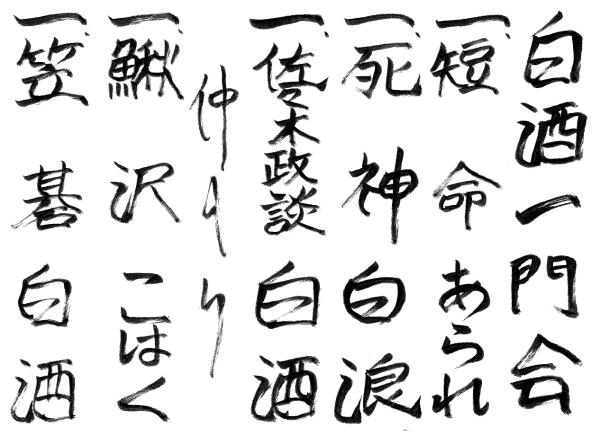 白酒一門会
一、短命 あられ
一、死神 白浪
一、佐々木政談 白酒
仲入り
一、鰍沢 こはく
一、笠碁 白酒